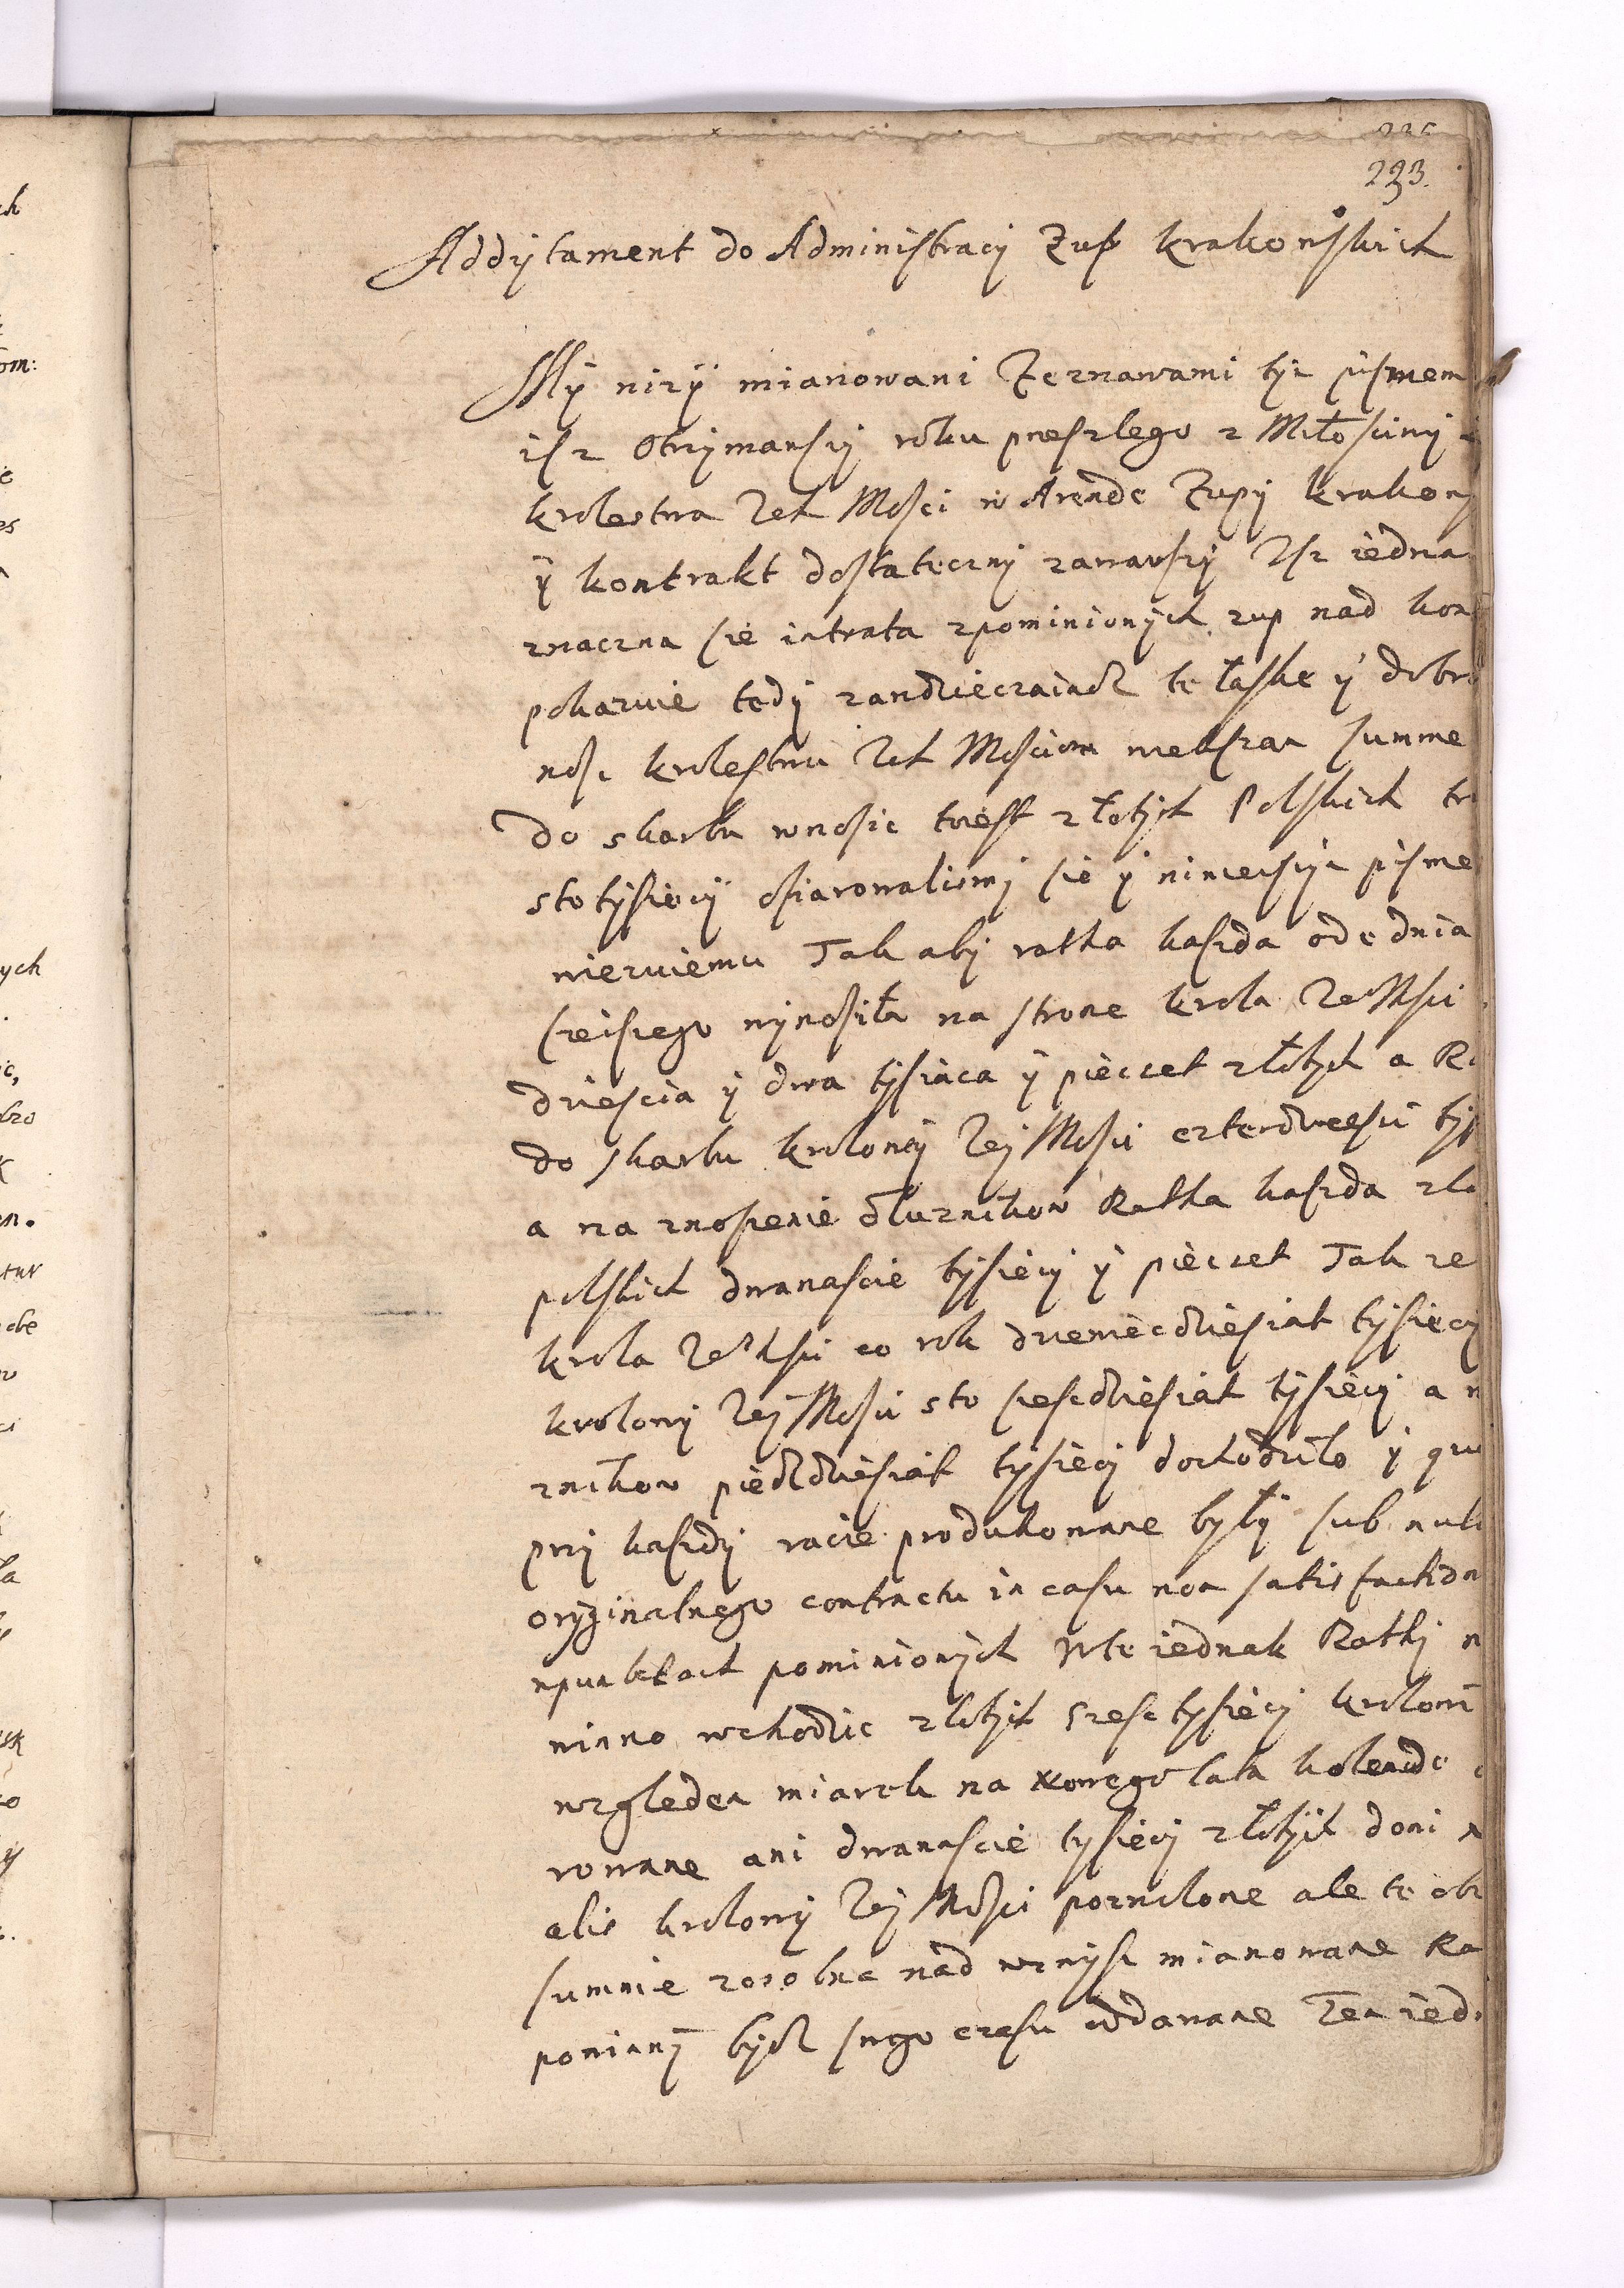 223.
Addytament do Administracij Zup krakowskich
My nizy mianowani Zeznawami tyz pismem
isz Otrzymawszy roku przeszlego z Miłosciwy
krolestwa Ich Mosci w Arende Zupy krakows
y kontrakt dostateczny zawawszy Isz iedna
znaczna sie intrata zpominionych zup nad kon
pokazuie tedy zawdzieczaiacz te łaske y dobro
nosc krolestwu Ich Mosciom wiekszaa summe
do skarbu wnosic to iest złotych Polskich tr
sto tysiecy ofiarowalismy sie y ninieiszyz pisme
niezuiemu Tak aby ratha kaszda ode dnia
szeiszego wynosiła na strone krola Ie Msci
dziescia y dwa tysiaca y piecset złotych a Ra
do skarbu krolowej Iej Mosci czterdziesci tys
a na znoszenie dluznikow Ratha kaszda zlo
polskich dwanascie tysiecy y piecset Tak ze
krola Ie Msci co rok dziewiecdziesiat tysiecy
krolowy Iej Mosci sto szescdziesiat tysiecy a n
znikow piedzdziesiat tysiecy dochodziło y qui
przy kaszdy racie produkowane były sub nuli
oryginalnego contractu in casu non satisfactidn
wpunktach pominionych Wte iednak Rathy n
winno wchodzic zlotych szesc tysiecy krolowi
wzgledem miarek na xowego lata kolende
rowane ani dwanascie tysiecy złotych doni
alis krolowy Iej Mosci pozwolone ale te obi
summie zosobna nad wzwysz mianowane Ra
powinny bydz swego czasu oddawane Ten iedn